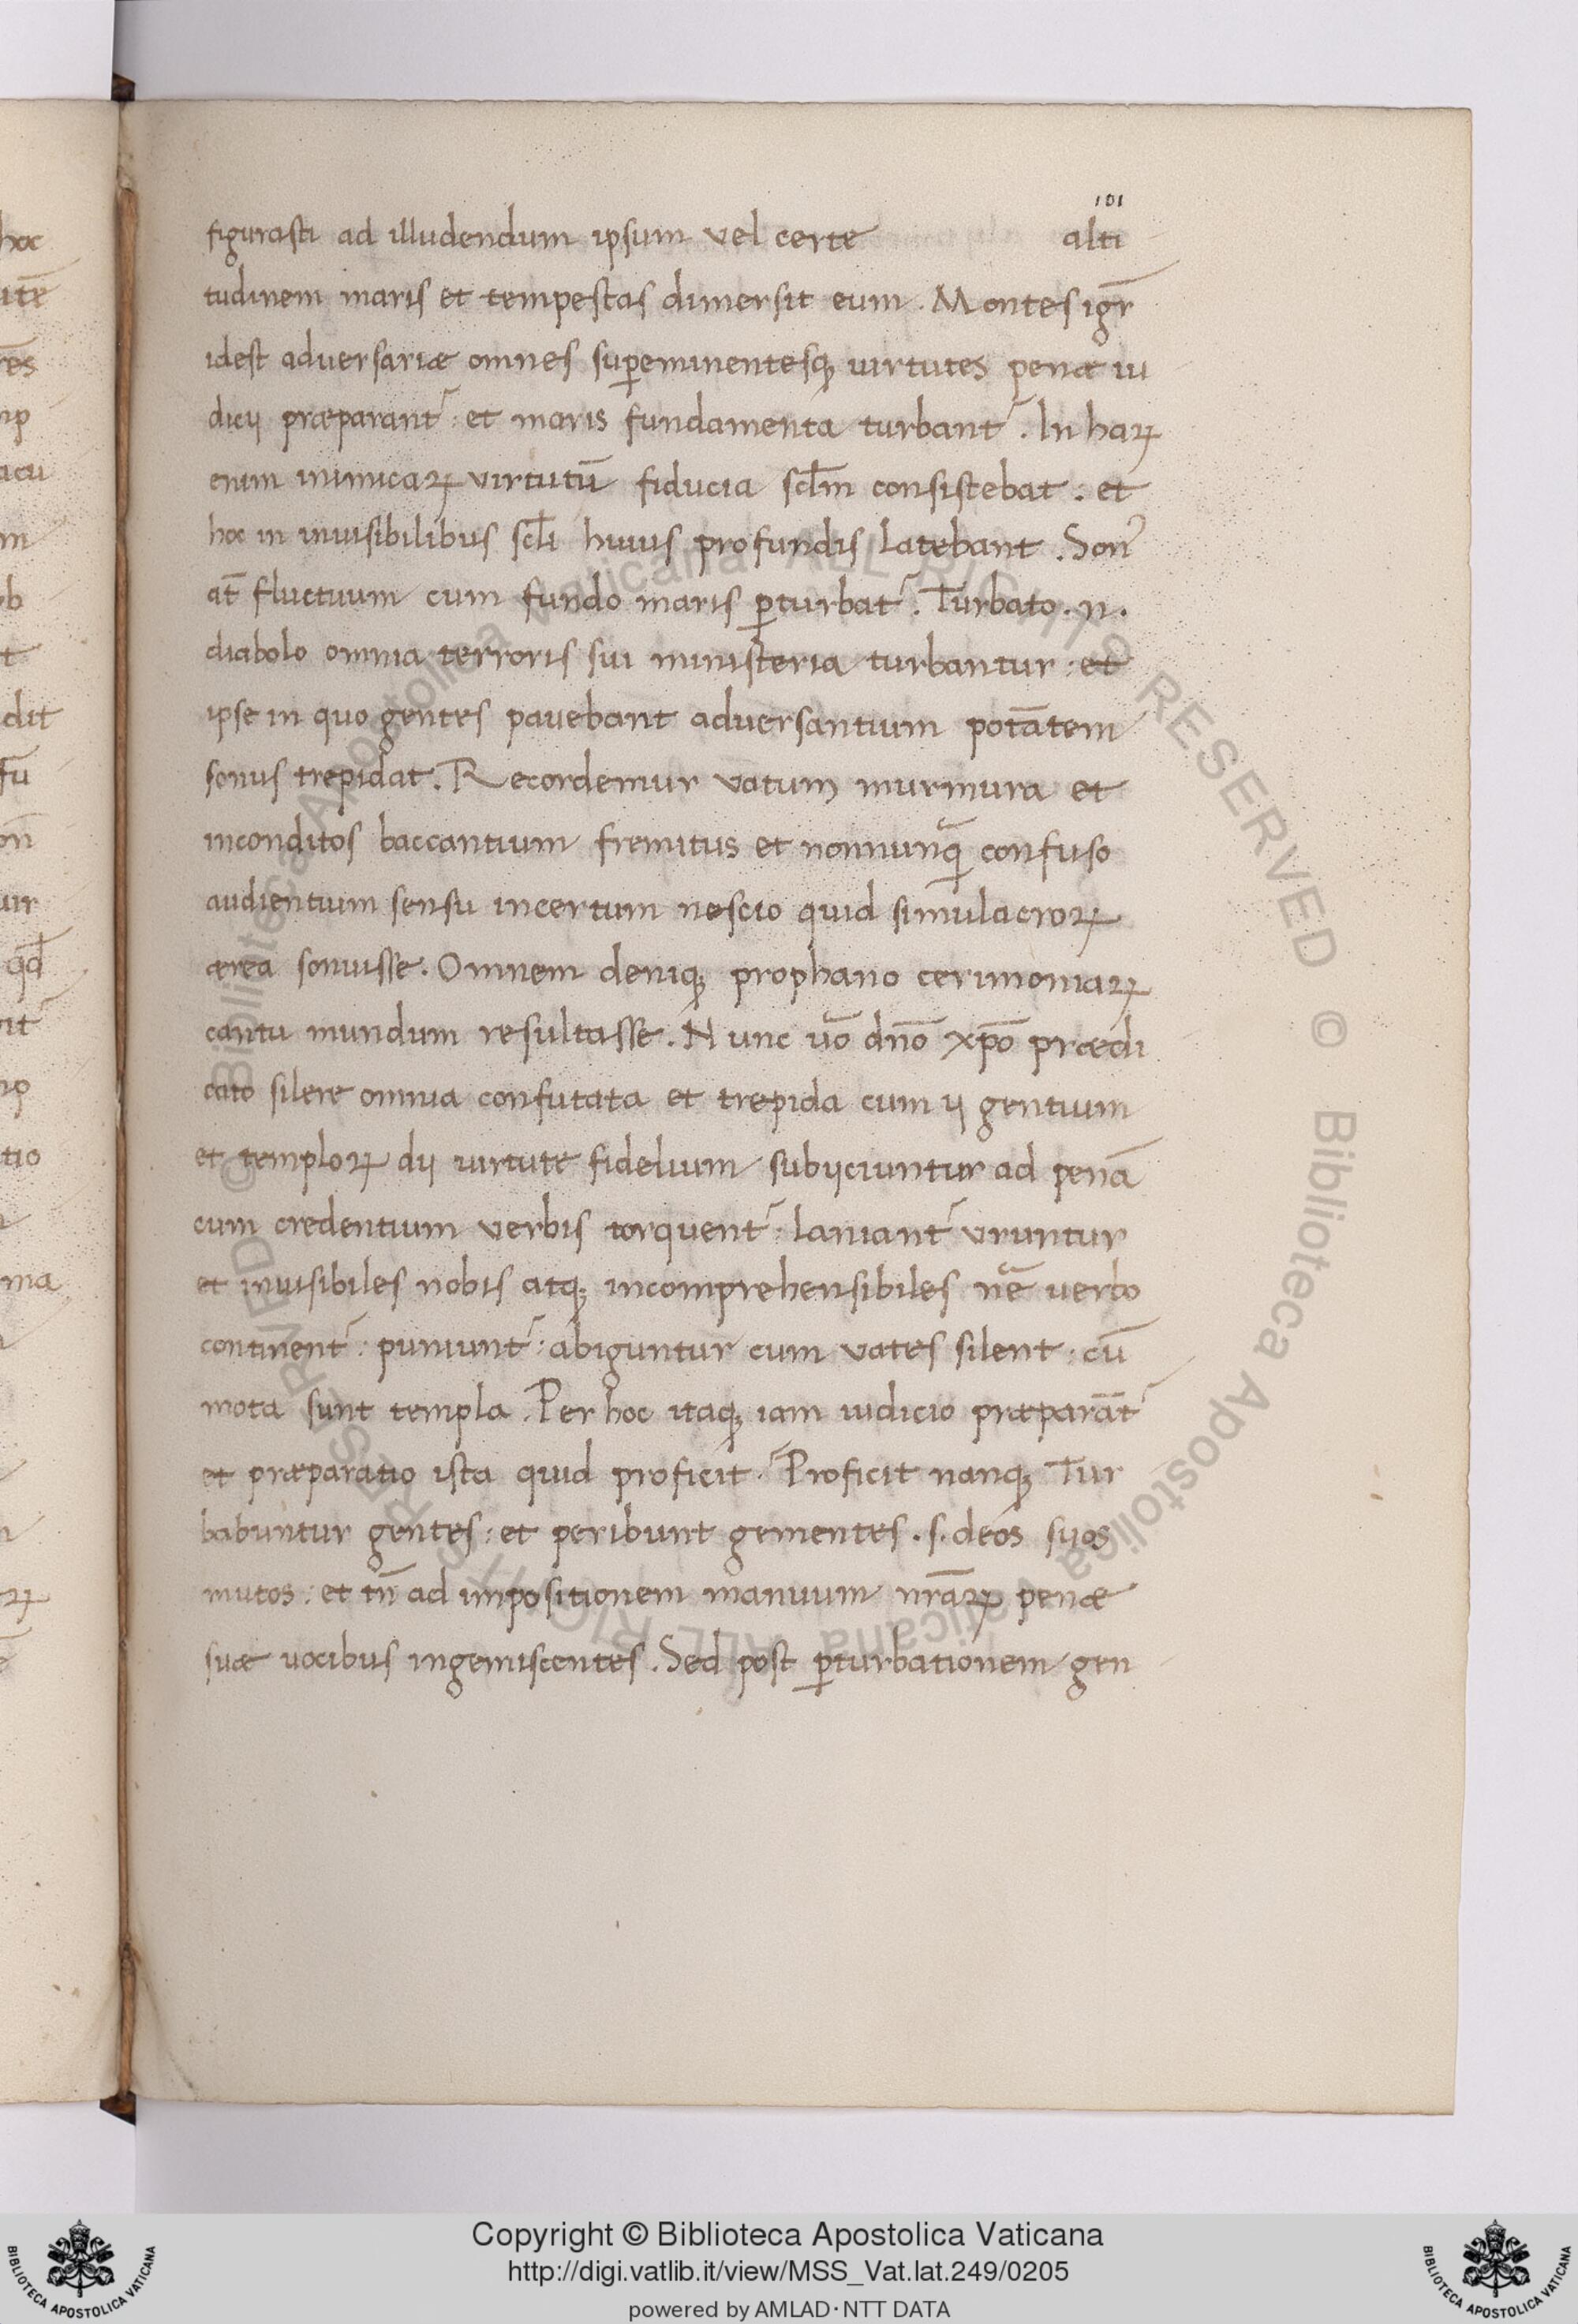 101
figurasti ad illudendum ipsum vel certe alti
tudinem maris et tempestas dimersit eum. Montes igr̄
idest adversariæ omnes sup̲eminentesq; uirtutes penæ iu
dicij præparant᷑: et maris fundamenta turbant᷑. In haꝝ
enim inimicaꝝ virtutū fiducia scl̄m consistebat: et
hoc in inuisibilibus scl̄i huius profundis latebant. Son᷑
at̄ fluctuum cum fundo maris ꝑturbat᷑. Turbato .n.
diabolo omnia terroris sui ministeria turbantur: et
ipse in quo gentes pauebant adversantium potātem
sonus trepidat. Recordemur vatum murmura et
inconditos baccantium fremitus et nonnunq̄ confuso
audientium sensu incertum nescio quid simulacroꝝ
ærea sonuisse. Omnem deniq; prophano cerimoniaꝝ
cantu mundum resultasse. Nunc ūo dn̄o xp̄o prædi
cato silere omnia confutata et trepida cum ij gentium
et temploꝝ dij uirtute fidelium subijciuntur ad penā
cum credentium verbis torquent᷑: laniant᷑ vruntur
et inuisibiles nobis atq; incomprehensibiles nē verbo
continent᷑: puniunt᷑: abiguntur cum vates silent: cū
mota sunt templa. Per hoc itaq; iam iudicio præparāt᷑
et præparatio ista quid proficit. Proficit nanq; Tur
babuntur gentes: et peribunt gementes .s. deos suos
mutos: et tn̄ ad impositionem manuum nr̄aꝝ penæ
suæ uocibus ingemiscentes. Sed post ꝑturbationem gen
© Biblioteca Apostolica Vaticana ALL RIGHTS RESERVED © Biblioteca Apostolica Vaticana ALL RIGHTS RESERVED
Copyright © Biblioteca Apostolica Vaticana
http://digi.vatlib.it/view/MSS_Vat.lat.249/0205
powered by AMLAD·NTT DATA
BIBLIOTECA APOSTOLICA VATICANA
BIBLIOTECA APOSTOLICA VATICANA